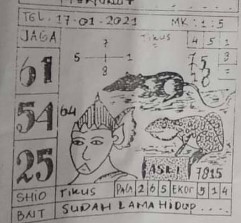 TGL. 17-01-2021 MK: 1:5
JAGA 7 TIKUS 4 5 1
5 1
8
61
54 64
25 ASLI 7815
SHIO TIKUS PALA 2 6 5 EKOR 9 1 4
BAIT SUDAH LAMA HIDUP...